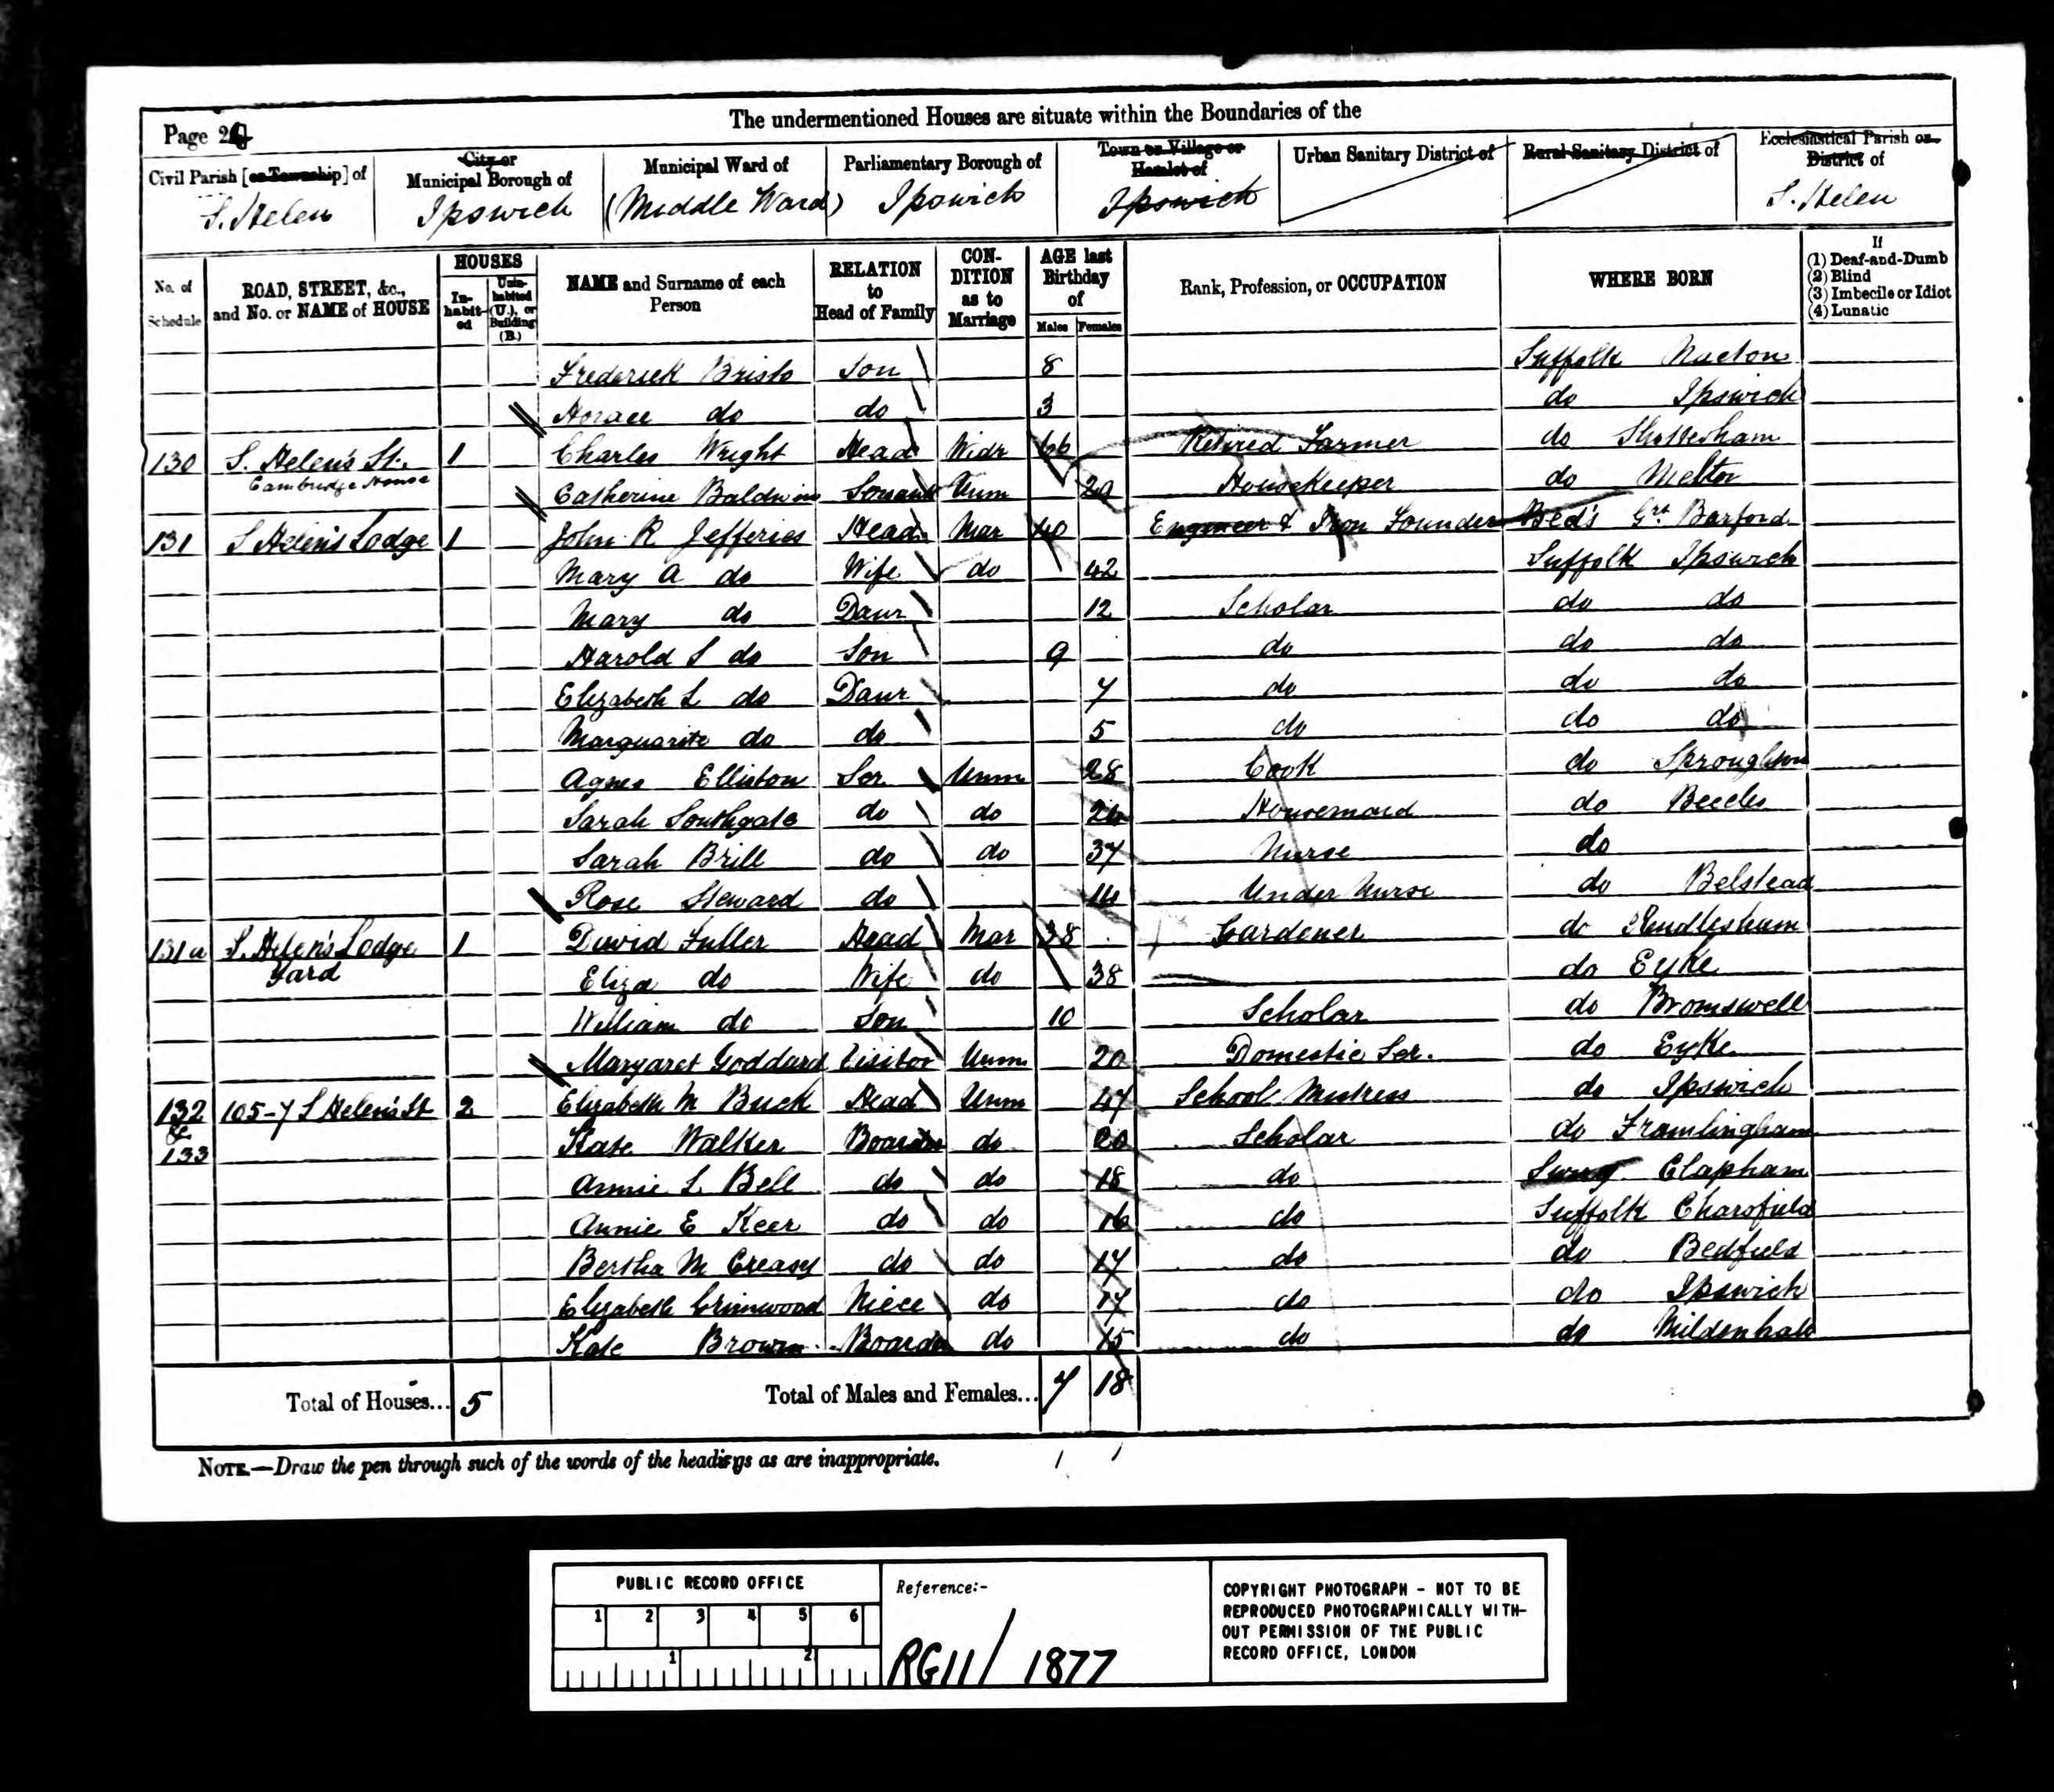 The undermentioned Houses are situate within the Boundaries of the
Page 2
Civil Parish [or Township] of
S. Helen
City or Municipal Borough of
Ipswich
Municipal Ward of
(Middle Ward)
Parliamentary Borough of
Ipswich
Town or Village or Hamlet of
Ipswich
Urban Sanitary District of
Rural Sanitary District of
Ecclesiastical Parish or District of
S. Helen
No. of Schedule
ROAD, STREET, &c., and No. or NAME of HOUSE
HOUSES
In-habit-ed
Unin-habited (U.), or Building (B.)
NAME and Surname of each Person
RELATION to Head of Family
CON-DITION as to Marriage
AGE last Birthday of
Males Females
Rank, Profession, or OCCUPATION
WHERE BORN
If
(1) Deaf-and-Dumb
(2) Blind
(3) Imbecile or Idiot
(4) Lunatic
Frederick Bristo Son 8 Suffolk Nacton
Horace do do 3 do Ipswich
130 S. Helen's St. 1 Charles Wright Head Widr 66 Retired Farmer do
Cambridge House
Catherine Baldwin Servant Unm Housekeeper do Melton
131 S Helen's Lodge 1 John R Jefferies Head Mar 40 Engineer & Iron Founder Bed's Grt Barford
Mary A do Wife do 42 Suffolk Ipswich
Mary do Daur 12 Scholar do do
Harold S do Son 9 do do do
Elizabeth L do Daur 7 do do do
Marguarite do do 5 do do do
Agnes Elliston Ser Unm 28 Cook do Sproughton
Sarah Southgate do do Housemaid do Beccles
Sarah Brill do do 37 Nurse do
Rose Steward do 14 Under Nurse do Belstead
131a S. Helen's Lodge 1 David Fuller Head Mar 38 Gardener do Rendlesham
Yard
Eliza do Wife do 38 do Eyke
William do Son 10 Scholar do Bromswell
Margaret Goddard Visitor Unm 20 Domestic Ser. do Eyke
132 105-7 S Helen's St 2 Elizabeth M Buck Head Unm 47 School Mistress do Ipswich
& 133
Kate Walker Boarder do 20 Scholar do Framlingham
Annie L Bell do do 18 do Surry Clapham
Annie E Keer do do 16 do Suffolk Charsfield
Bertha M Creasy do do 17 do do Bedfield
Elizabeth Grimwood Niece do 17 do do Ipswich
Kate Brown Boarder do 15 do do Mildenhall
Total of Houses... 5
Total of Males and Females... 7 18
NOTE.—Draw the pen through such of the words of the headings as are inappropriate.
PUBLIC RECORD OFFICE
1 2 3 4 5 6
1 2
Reference:-
RG11/1877
COPYRIGHT PHOTOGRAPH - NOT TO BE
REPRODUCED PHOTOGRAPHICALLY WITH-
OUT PERMISSION OF THE PUBLIC
RECORD OFFICE, LONDON